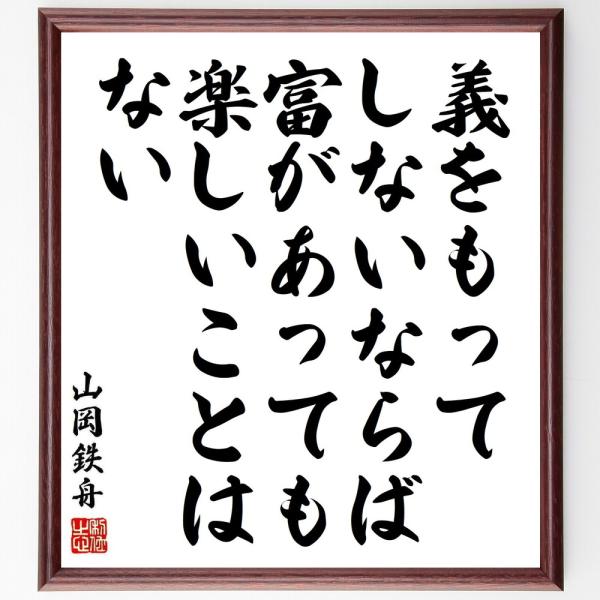 義をもって
しないならば
富があっても
楽しいことは
ない
山岡鉄舟